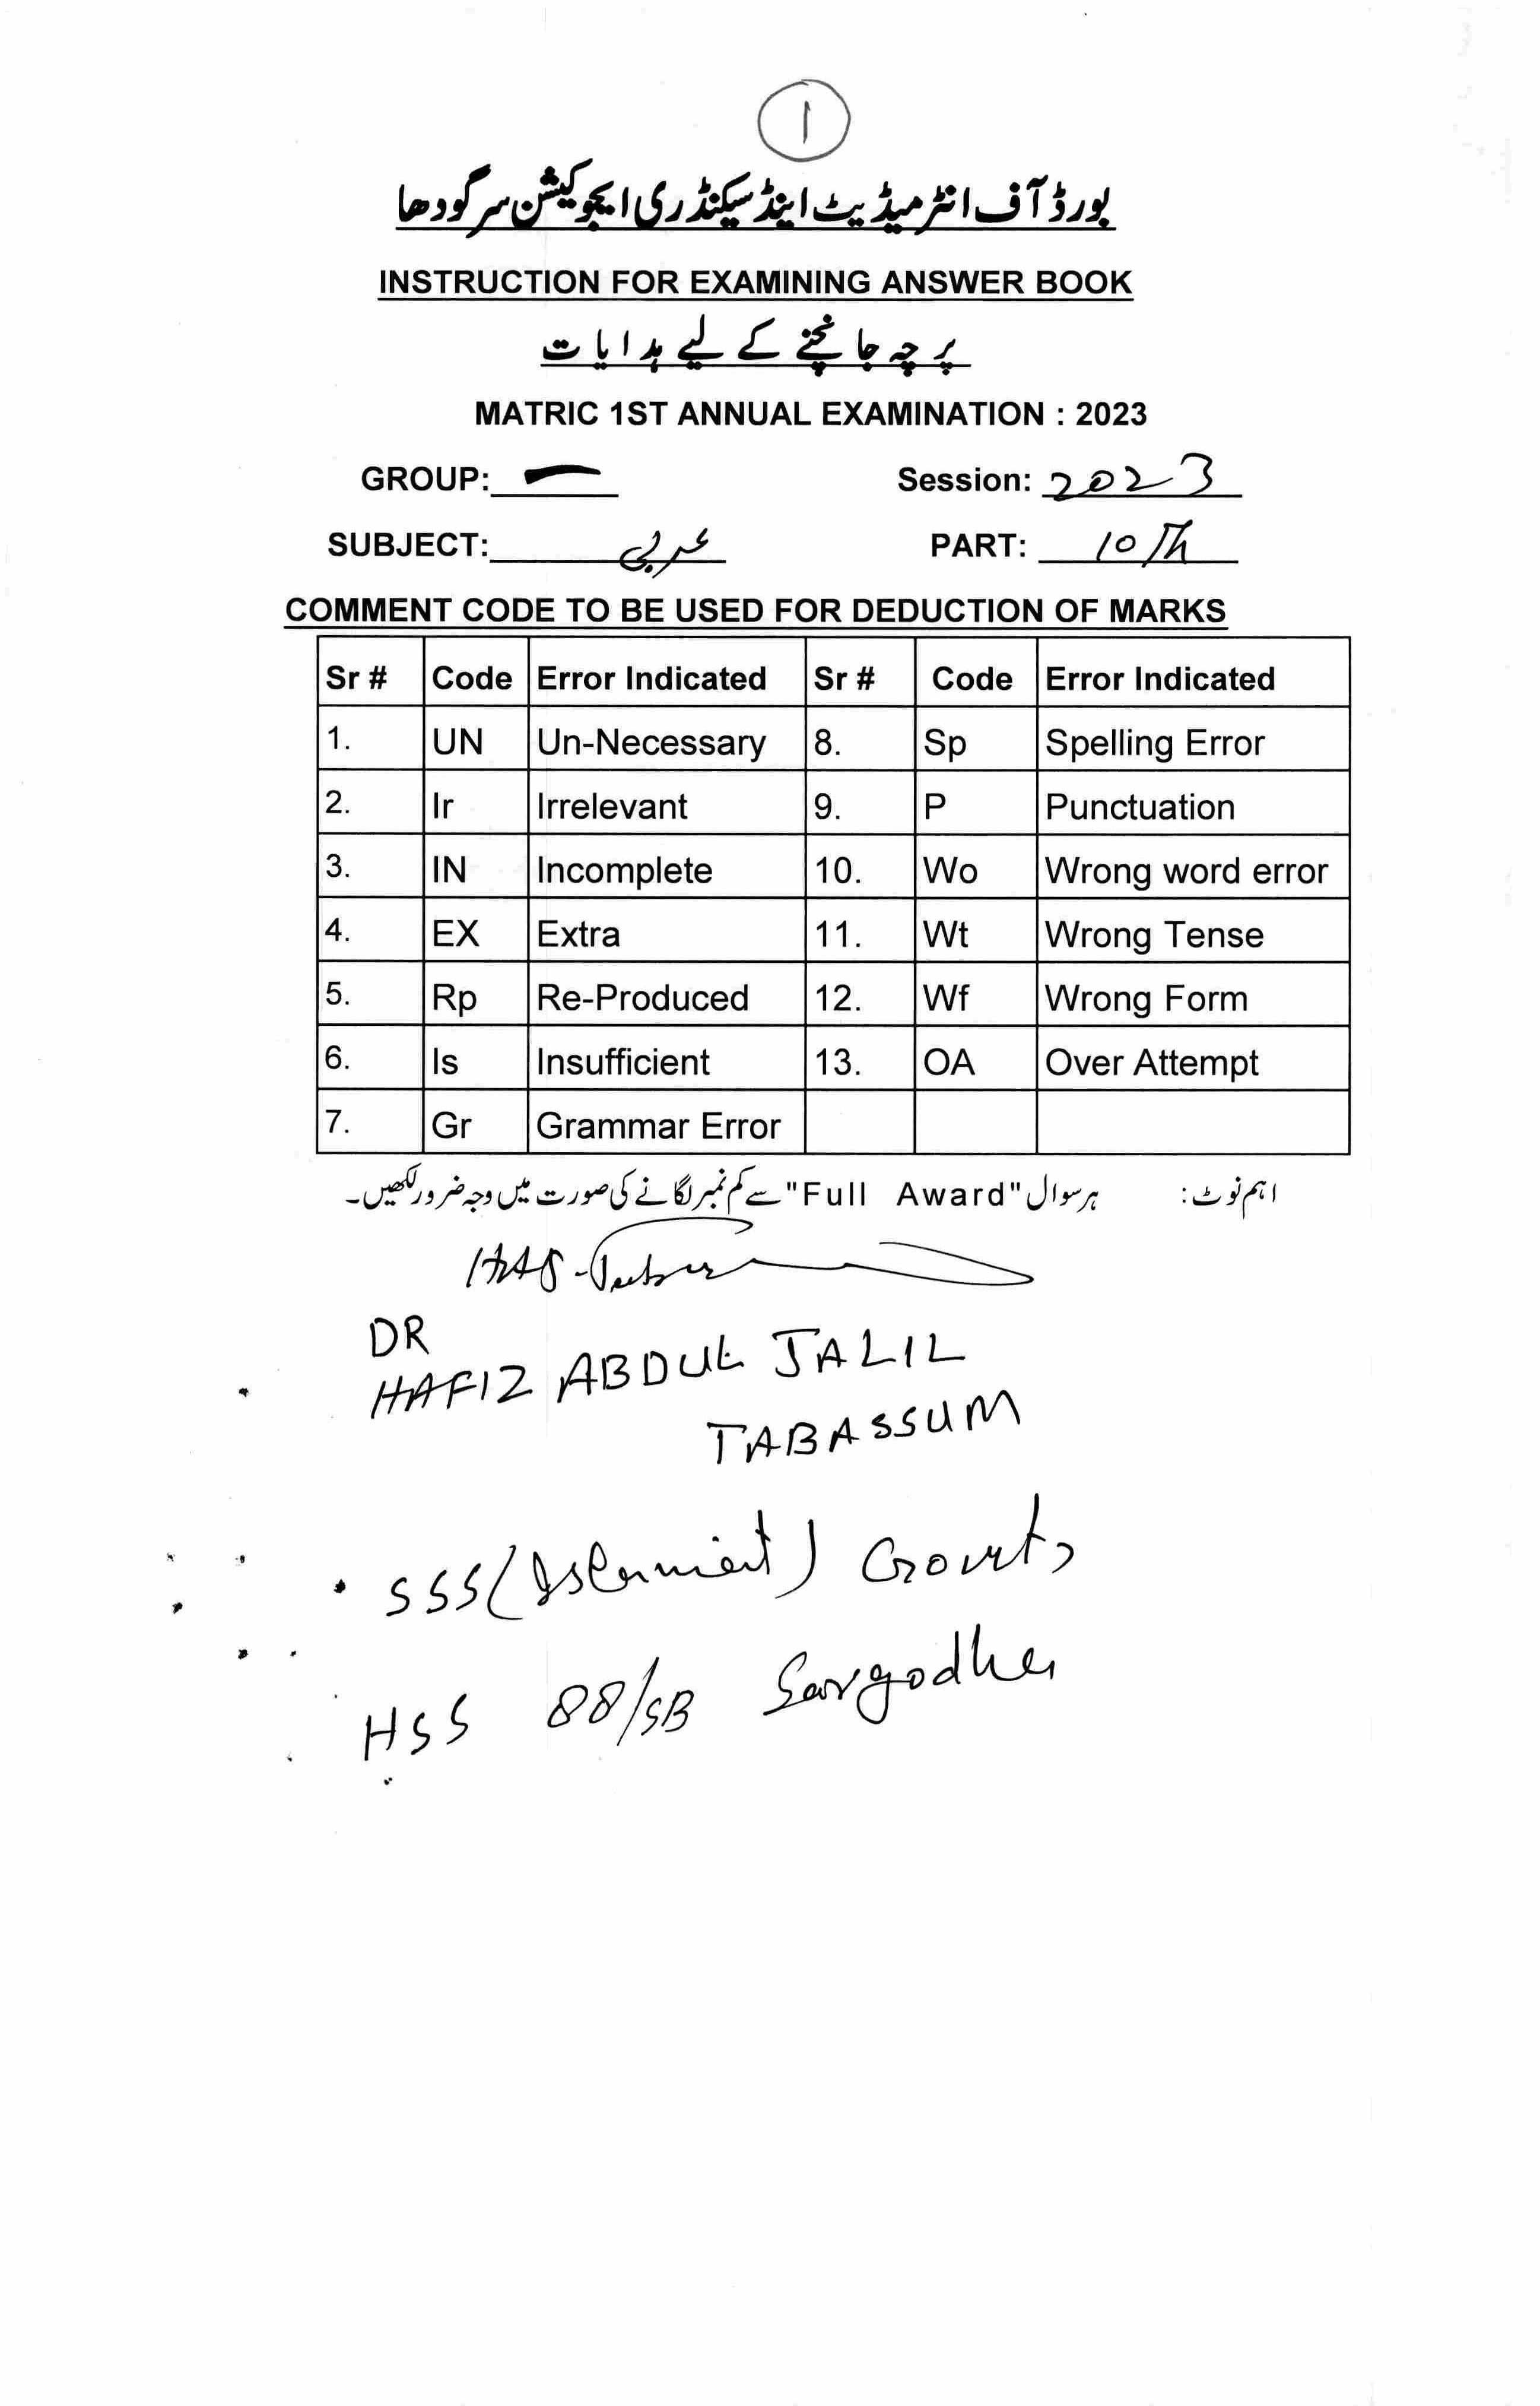 1
بورڈ آف انٹرمیڈیٹ اینڈ سیکنڈری ایجوکیشن سرگودھا
INSTRUCTION FOR EXAMINING ANSWER BOOK
پرچہ جانچنے کے لیے ہدایات
MATRIC 1ST ANNUAL EXAMINATION : 2023
GROUP: — Session: 2023
SUBJECT: عربی PART: 10th
COMMENT CODE TO BE USED FOR DEDUCTION OF MARKS
Sr # Code Error Indicated Sr # Code Error Indicated
1. UN Un-Necessary 8. Sp Spelling Error
2. Ir Irrelevant 9. P Punctuation
3. IN Incomplete 10. Wo Wrong word error
4. EX Extra 11. Wt Wrong Tense
5. Rp Re-Produced 12. Wf Wrong Form
6. Is Insufficient 13. OA Over Attempt
7. Gr Grammar Error
اہم نوٹ: ہر سوال "Full Award" سے کم نمبر لگانے کی صورت میں وجہ ضرور لکھیں۔
DR
HAFIZ ABDUL JALIL
TABASSUM
SSS (Islamiat) Govt,
HSS 88/SB Sargodha